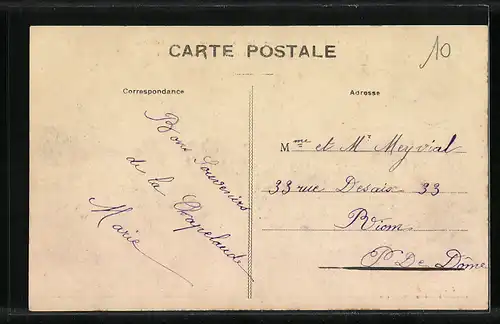 CARTE POSTALE
10
Correspondance
Adresse
Bons Souvenirs
de la Chapelaude
Marie
Mme et Mr Meyvial
33 rue Desaix 33
Riom
P De Dôme